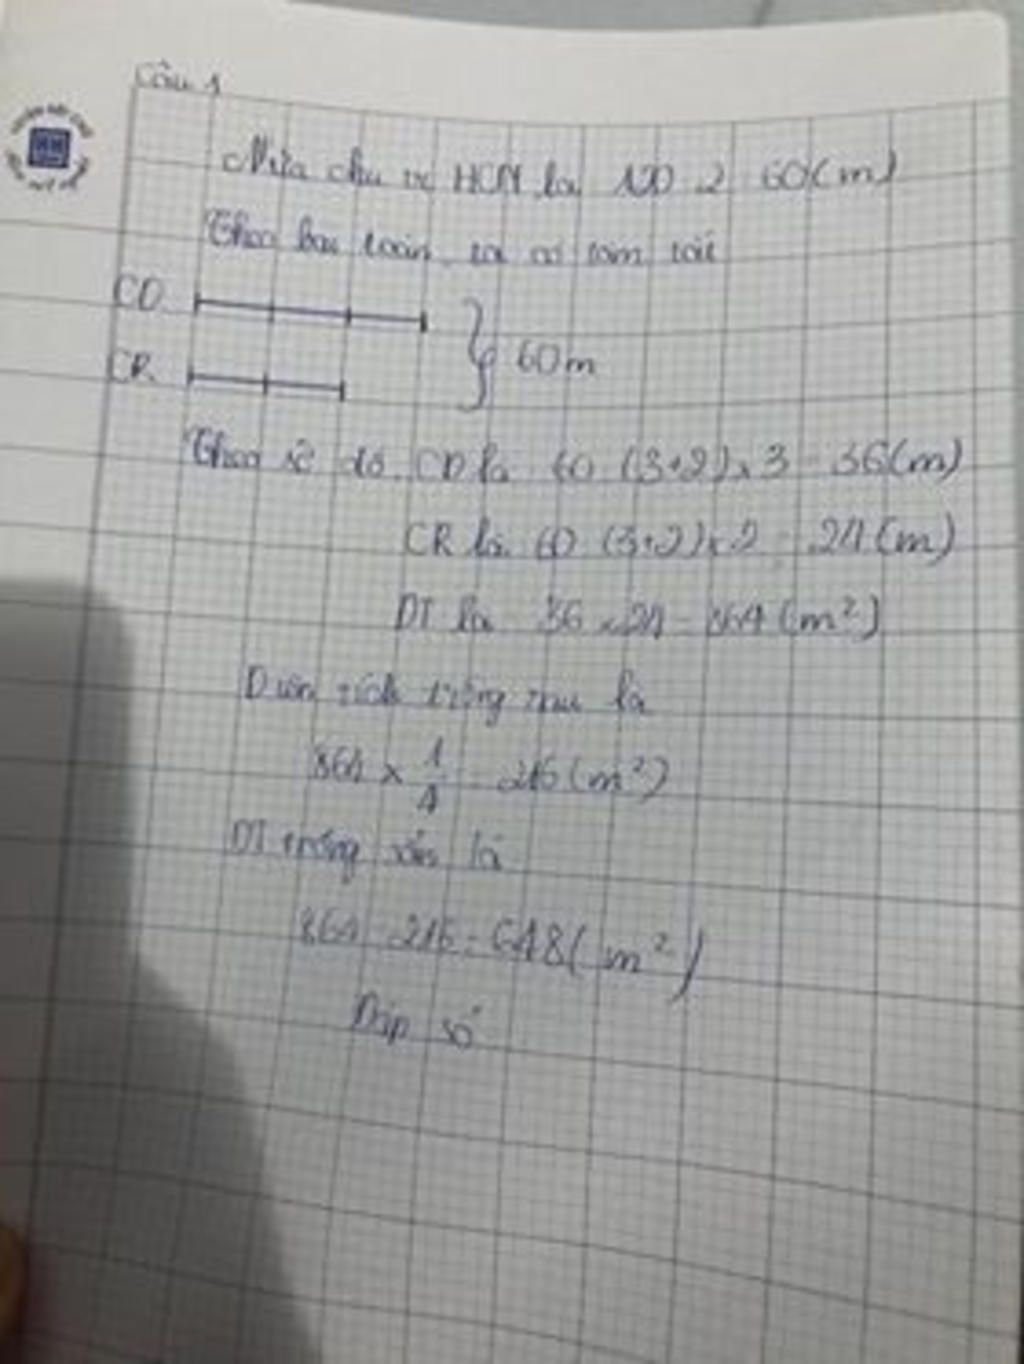 Câu 1
Nửa chu vi HCN là 120 : 2 = 60 (m)
Theo bài toán, ta có tóm tắt
CD
CR
60m
Theo sơ đồ, CD là 60 : (3+2) x 3 = 36 (m)
CR là 60 : (3+2) x 2 = 24 (m)
DT là 36 x 24 = 864 (m²)
Diện tích trồng rau là
864 x 1/4 = 216 (m²)
DT trồng là
864 - 216 = 648 (m²)
Đáp số